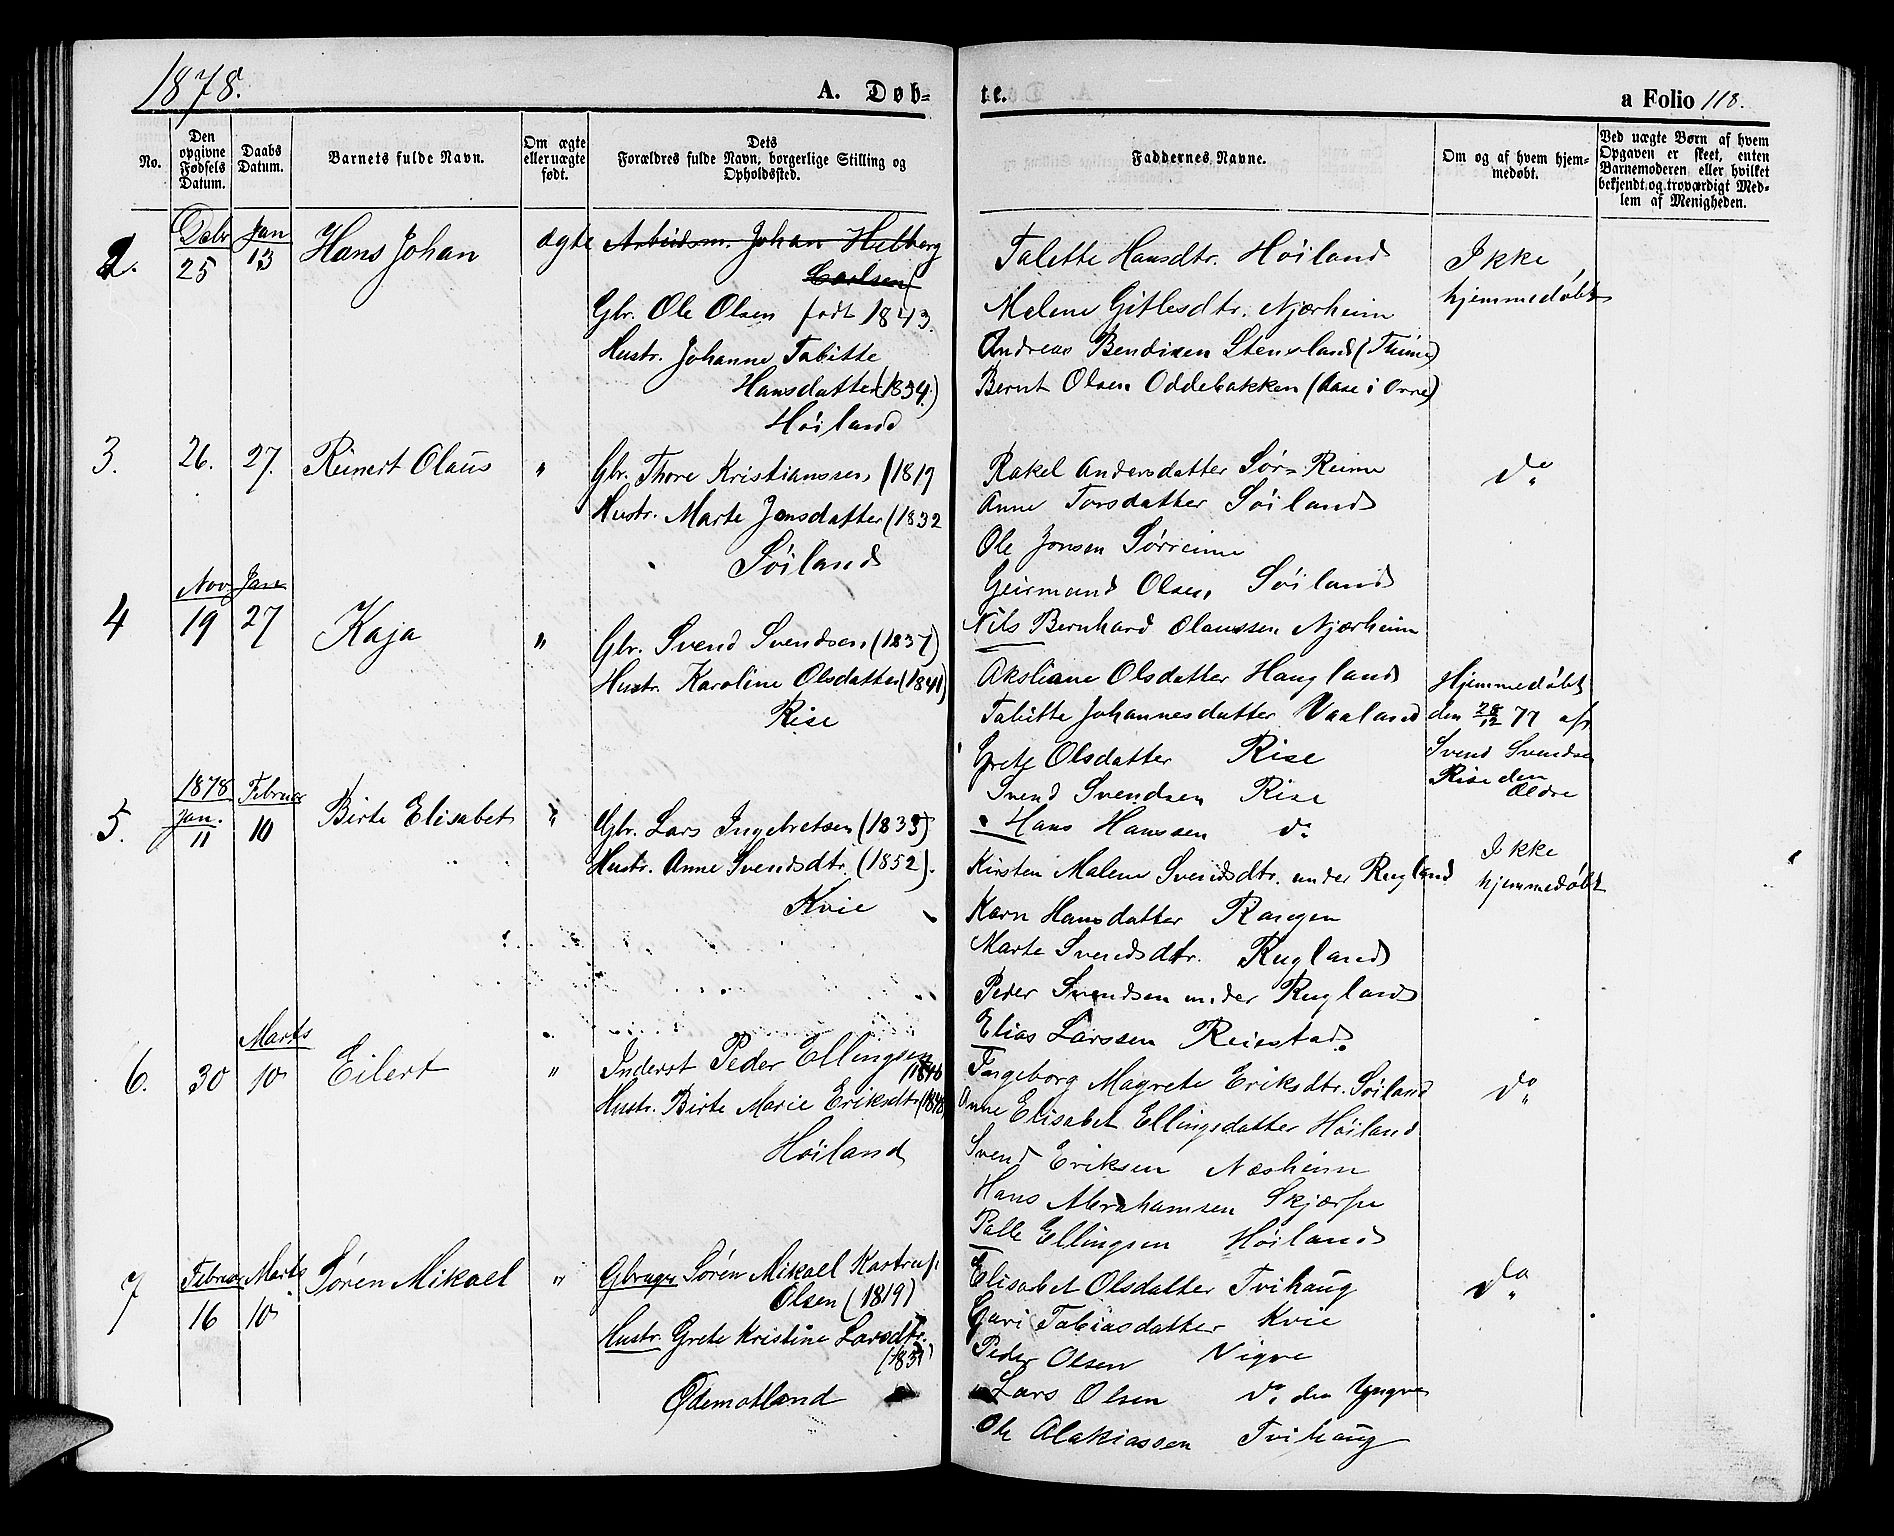 1878.
A. Døb=
te.
a Folio 118.
No.
Den opgivne Fødsels Datum.
Daabs Datum.
Barnets fulde Navn.
Om ægte eller uægte født.
Dets Forældres fulde Navn, borgerlige Stilling og Opholdssted.
Faddernes Navne.
Om og af hvem hjem-
medøbt.
Ved uægte Børn af hvem
Opgaven er skeet, enten
Barnemoderen eller hvilket
bekjendt og troværdigt Med-
lem af Menigheden.
2.
Decbr 25
Jan 13
Hans Johan
ægte
Arbeidsm. Johan
Carlsen
Gbr. Ole Olsen født 1843.
Hustr. Johanne Tabitte
Hansdatter (1834.)
Höiland
Talette Hansdtr. Höiland
Malene Gitlesdtr. Njærheim
Andreas Bendixen Stensland (Thime)
Bernt Olsen Oddebakken (Aase i Orre)
Ikke
hjemmedøbt
3.
26.
27.
Reinert Olaus
"
Gbr. Thore Kristianssen (1819
Hustr. Marte Jonsdatter (1832
Söiland
Rakel Andersdatter Sör-Reime
Anne Torsdatter Söiland
Ole Jonsen Sörreime
Geirmund Olsen, Söiland
Nils Bernhard Olaussen Njærheim
do
4
Nov 19
Jan 27
Kaja
"
Gbr. Svend Svendsen (1837)
Hustr. Karoline Olsdatter (1841)
Rise
Aksliane Olsdatter Haugland
Tabitte Johannesdatter Vaaland
Grete Olsdatter Rise
Svend Svendsen Rise
Hans Hanssen do
Hjemmedøbt
den 28/12 77 af
Svend Svendsen
Rise den
Ældre
5.
1878 Jan. 11
Februar 10
Birte Elisabet
"
Gbr. Lars Ingebretsen (1833)
Hustr. Anne Svendsdtr. (1852).
Kvie
Kirsten Malene Svendsdtr. under Rugland
Karn Hansdatter Rangen
Marte Svendsdtr. Rugland
Peder Svendsen under Rugland
Elias Larssen Reiestad.
Ikke
hjemmedøbt
6.
30
Marts 10
Eilert
"
Inderst Peder Ellingsen
Hustr. Birte Marie Eriksdtr
Höiland
Ingeborg Magrete Eriksdtr. Söiland
Anne Elisabet Ellingsdatter Höiland
Svend Eriksen Næsheim
Hans Abrahamsen Skjærpe
Palle Ellingsen Höiland
do
7
Februar 16
Marts 10
Sören Mikael
"
Gbruger Sören Mikael Kastrup
Olsen (1819)
Hustr. Grete Kristine Larsdtr.
Ødemotland
Elisabet Olsdatter Tvihaug
Guri Tobiasdatter Kvie
Peder Olsen Vigre
Lars Olsen do den Yngre
Ole Alakiassen Tvihaug
do